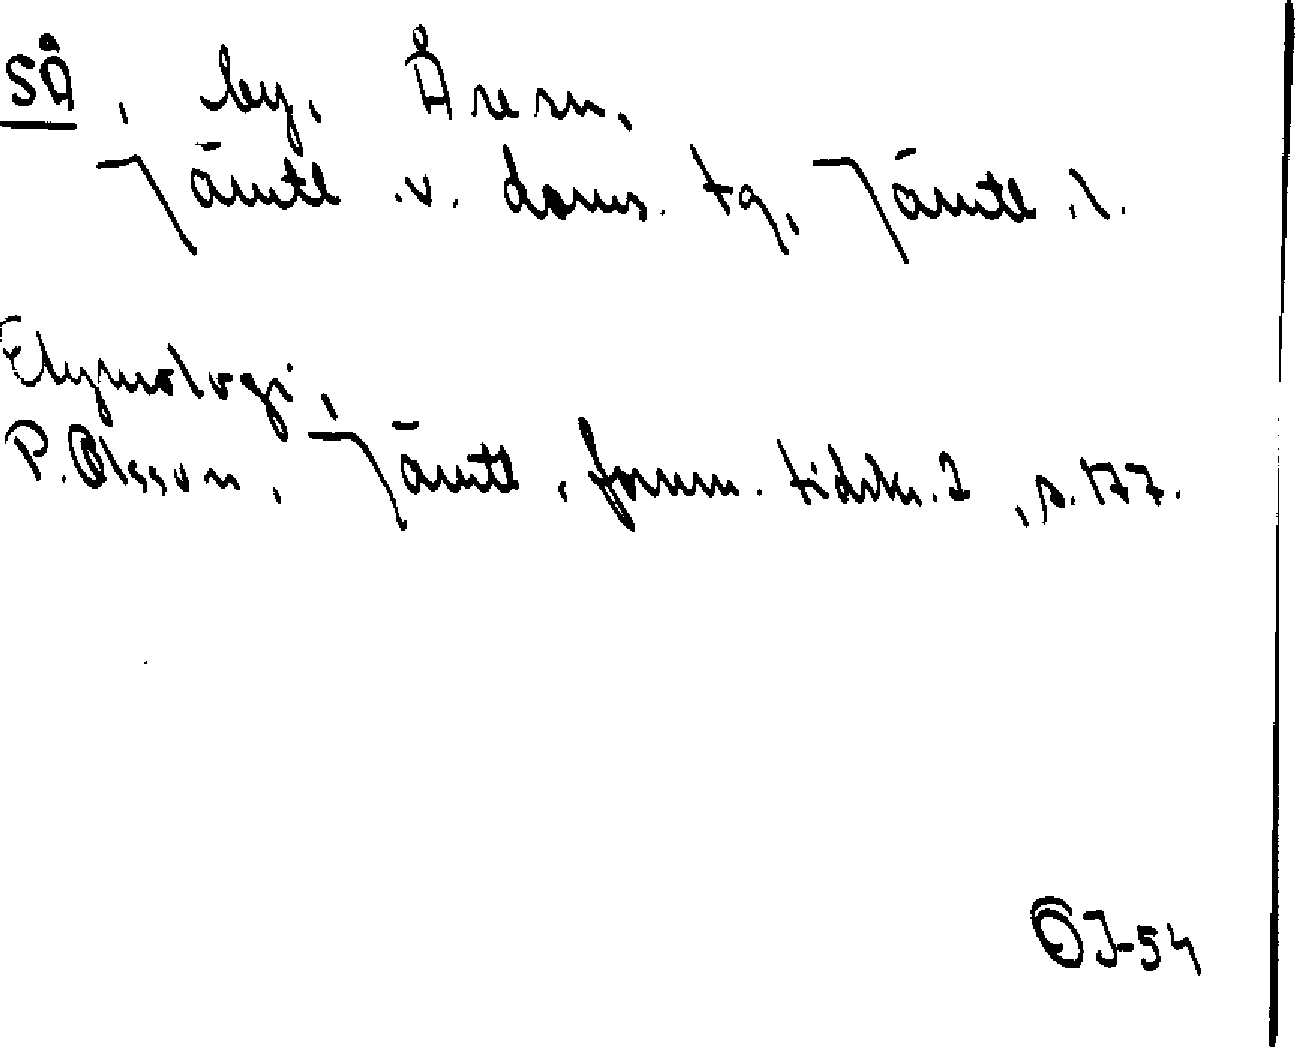 SÅ, by, Åre sn,
Jämtl. v. doms. tg, Jämtl. l.
Etymologi,
P. Olsson, Jämtl. fornm. tidskr. 2, s. 177.
OJ-54